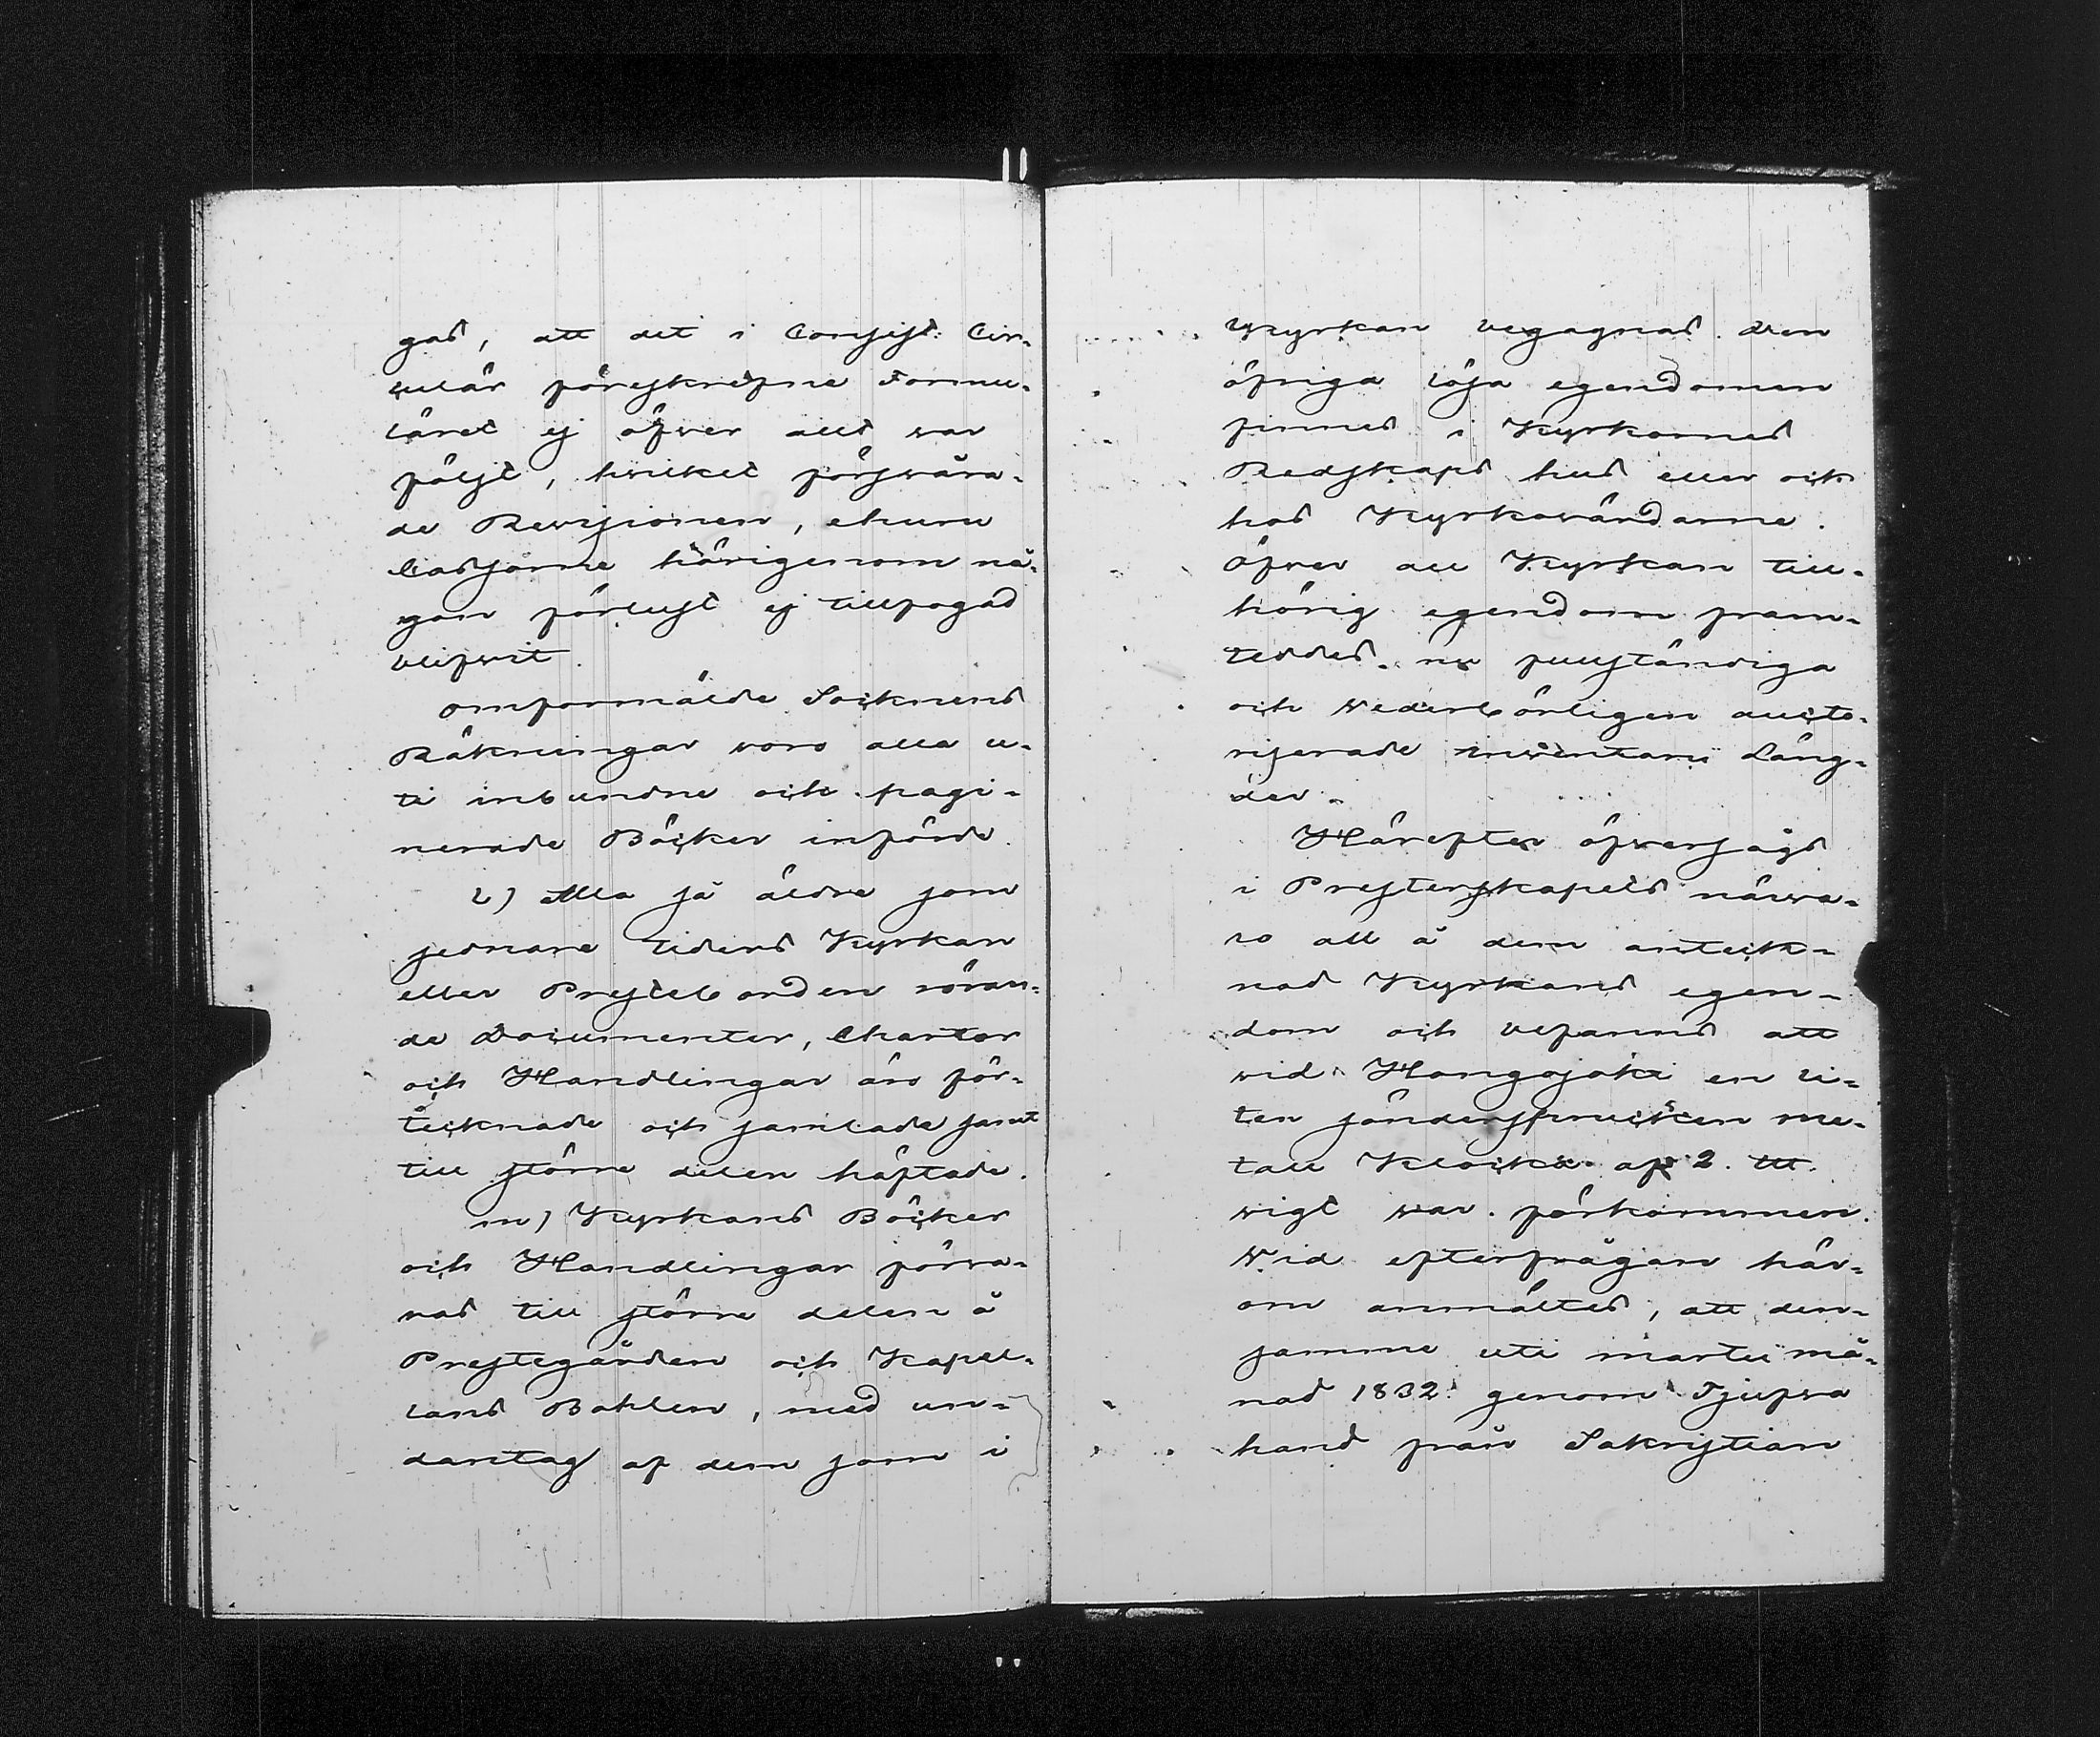 gas, att det i Consist. Cir-
culär föreskrefne Formu-
läret ej öfver allt war
följt, hwilket förswåra-
de Revisionen, ehuru
Cassorne härigenom nå-
gon förlust ej tillfogad
blifwit.
Omformälde Socknens
Räkningar woro alla u-
ti inbundne och pagi-
nerade Böcker införde.
l) Alla så äldre som
sednare tiders Kyrkan
eller Presteborden röran-
de Documenter, Chartor
och Handlingar äro för-
tecknade och samlade samt
till större delen häftade.
m) Kyrkans Böcker
och Handlingar förva-
ras till större delen å
Prestegården och Kapel-
lans Bohlen, med un-
dantag af dem som i
Kyrkan begagnas. Den
öfriga lösa egendomen
finnes i Kyrkornes
Redskaps hus eller och
hos Kyrkowärdarne.
Öfver all Kyrkan till-
hörig egendom fram-
teddes nu fullständiga
och wederbörligen aucto-
riserade inventarii Läng-
der.
Härefter öfversågs
i Presterskapets närva-
ro all å dem anteck-
nad Kyrkans egen-
dom och befanns att
wid Hongojoki en li-
ten sönderspruucken me-
tall Klocka af 2. ℔.
wigt war förkommen.
Wid efterfrågan här-
om anmältes, att den-
samme uti martii må-
nad 1832 genom Tjufva
hand från Sakristian